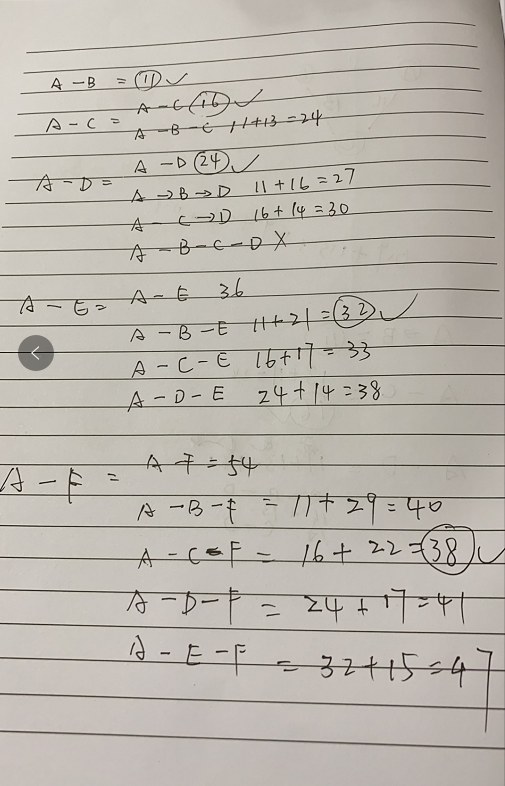 A - B = 11 ✓
A - C = A - C 16 ✓
A - B - C 11 + 13 = 24
A - D = A - D 24 ✓
A → B → D 11 + 16 = 27
A - C → D 16 + 14 = 30
A - B - C - D X
A - E = A - E 36
A - B - E 11 + 21 = 32 ✓
A - C - E 16 + 17 = 33
A - D - E 24 + 14 = 38
A - F = A - F = 54
A - B - F = 11 + 29 = 40
A - C - F = 16 + 22 = 38 ✓
A - D - F = 24 + 17 = 41
A - E - F = 32 + 15 = 47